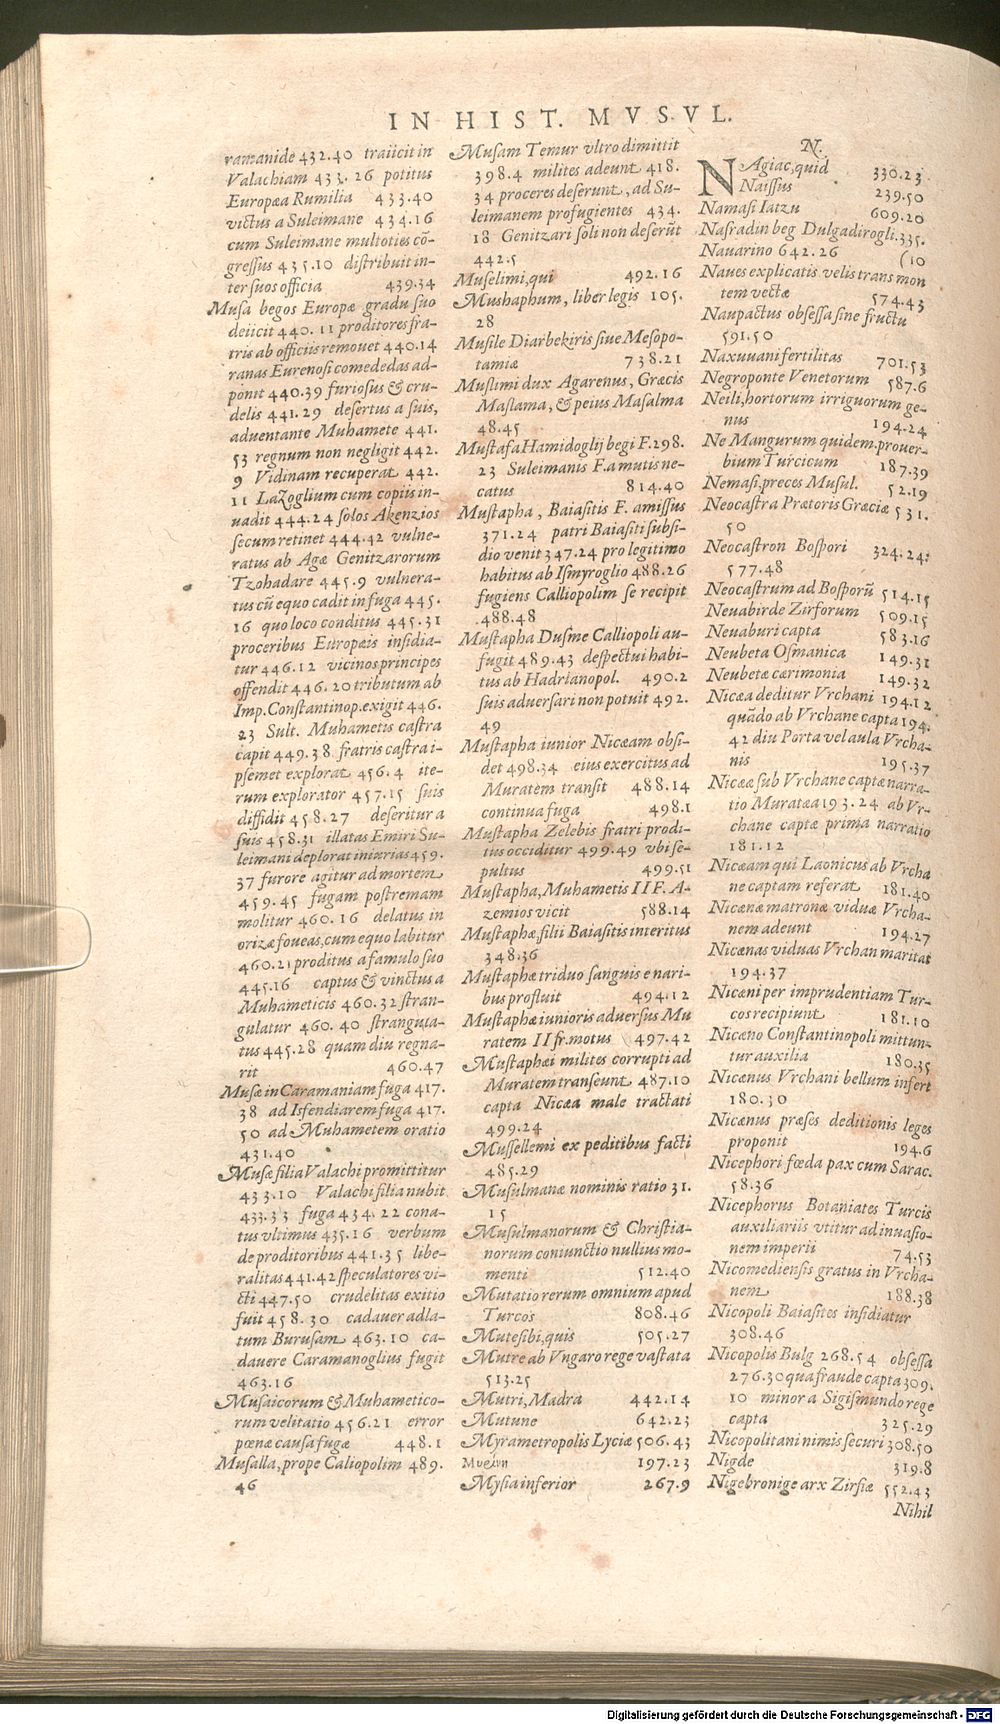 IN HIST. MVSVL.
ramanide 432.40 traiicit in
Valachiam 433. 26 potitus
Europæa Rumilia 433.40
victus a Suleimane 434.16
cum Suleimane multoties cō-
gressus 435.10 distribuit in-
ter suos officia 439.34
Musa begos Europæ gradu suo
deiicit 440. 11 proditores fra-
tris ab officiis remouet 440.14
ranas Eurenosi comededas ad-
ponit 440.39 furiosus & cru-
delis 441.29 desertus a suis,
aduentante Muhamete 441.
53 regnum non negligit 442.
9 Vidinam recuperat 442.
11 Lazoglium cum copiis in-
uadit 444.24 solos Akenzios
secum retinet 444.42 vulne-
ratus ab Agæ Genitzarorum
Tzohadare 445.9 vulnera-
tus cū equo cadit in fuga 445.
16 quo loco conditus 445.31
proceribus Europæis insidia-
tur 446.12 vicinos principes
offendit 446. 20 tributum ab
Imp. Constantinop. exigit 446.
23 Sult. Muhametis castra
capit 449.38 fratris castra i-
psemet explorat 456.4 ite-
rum explorator 457.15 suis
diffidit 458.27 deseritur a
suis 458.31 illatas Emiri Su-
leimani deplorat iniurias 459.
37 furore agitur ad mortem
459.45 fugam postremam
molitur 460.16 delatus in
orizæ foueas, cum equo labitur
460.21 proditus a famulo suo
445.16 captus & vinctus a
Muhameticis 460.32 stran-
gulatur 460.40 strangula-
tus 445.28 quam diu regna-
rit 460.47
Musæ in Caramaniam fuga 417.
38 ad Isfendiarem fuga 417.
50 ad Muhametem oratio
431.40
Musæ filia Valachi promittitur
433.10 Valachi filia nubit
433.33 fuga 434. 22 cona-
tus vltimus 435.16 verbum
de proditoribus 441.35 libe-
ralitas 441.42 speculatores vi-
cti 447.50 crudelitas exitio
fuit 458.30 cadauer adla-
tum Burusam 463.10 ca-
dauere Caramanoglius fugit
463.16
Musaicorum & Muhametico-
rum velitatio 456.21 error
pœnæ causa fugæ 448.1
Musalla, prope Caliopolim 489.
46
Musam Temur vltro dimittit
398.4 milites adeunt 418.
34 proceres deserunt, ad Su-
leimanem profugientes 434.
18 Genitzari soli non deserūt
442.5
Muselimi, qui 492.16
Mushaphum, liber legis 105.
28
Musile Diarbekiris siue Mesopo-
tamiæ 738.21
Muslimi dux Agarenus, Græcis
Maslama, & peius Masalma
48.45
Mustafa Hamidoglij begi F. 298.
23 Suleimanis F. a mutis ne-
catus 814.40
Mustapha, Baiasitis F. amissus
371.24 patri Baiasiti subsi-
dio venit 347.24 pro legitimo
habitus ab Ismyroglio 488.26
fugiens Calliopolim se recipit
488.48
Mustapha Dusme Calliopoli au-
fugit 489.43 despectui habi-
tus ab Hadrianopol. 490.2
suis aduersari non potuit 492.
49
Mustapha iunior Nicæam obsi-
det 498.34 eius exercitus ad
Muratem transit 488.14
continua fuga 498.1
Mustapha Zelebis fratri prodi-
tus occiditur 499.49 vbi se-
pultus 499.51
Mustapha, Muhametis II F. A-
zemios vicit 588.14
Mustaphæ, filii Baiasitis interitus
348.36
Mustaphæ triduo sanguis e nari-
bus profluit 494.12
Mustaphæ iunioris aduersus Mu
ratem II fr. motus 497.42
Mustaphæi milites corrupti ad
Muratem transeunt 487.10
capta Nicæa male tractati
499.24
Mussellemi ex peditibus facti
485.29
Musulmanæ nominis ratio 31.
15
Musulmanorum & Christia-
norum coniunctio nullius mo-
menti 512.40
Mutatio rerum omnium apud
Turcos 808.46
Mutesibi, quis 505.27
Mutre ab Vngaro rege vastata
513.25
Mutri, Madra 442.14
Mutune 642.23
Myrametropolis Lyciæ 506.43
197.23
Mysia inferior 267.9
N.
NAgiac, quid 330.23
Naissus 239.50
Namasi Iatzu 609.20
Nasradin beg Dulgadirogli. 335.
Nauarino 642.26 (10
Naues explicatis velis trans mon
tem vectæ 574.43
Naupactus obsessa sine fructu
591.50
Naxuuani fertilitas 701.53
Negroponte Venetorum 587.6
Neili, hortorum irriguorum ge-
nus 194.24
Ne Mangurum quidem. prouer-
bium Turcicum 187.39
Nemasi, preces Musul. 52.19
Neocastra Prætoris Græciæ 531.
50
Neocastron Bospori 324.24.
577.48
Neocastrum ad Bosporū 514.15
Neuabirde Zirforum 509.15
Neuaburi capta 583.16
Neubeta Osmanica 149.31
Neubetæ cærimonia 149.32
Nicæa deditur Vrchani 194.12
quādo ab Vrchane capta 194.
42 diu Porta vel aula Vrcha-
nis 195.37
Nicææ sub Vrchane captæ narra-
tio Muratæa 193.24 ab Vr-
chane captæ prima narratio
181.12
Nicæam qui Laonicus ab Vrcha
ne captam referat 181.40
Nicænæ matronæ viduæ Vrcha-
nem adeunt 194.27
Nicænas viduas Vrchan maritat
194.37
Nicæni per imprudentiam Tur-
cos recipiunt 181.10
Nicæno Constantinopoli mittun-
tur auxilia 180.35
Nicænus Vrchani bellum infert
180.30
Nicænus præses deditionis leges
proponit 194.6
Nicephori fœda pax cum Sarac.
58.36
Nicephorus Botaniates Turcis
auxiliariis vtitur ad inuasio-
nem imperii 74.53
Nicomediensis gratus in Vrcha-
nem 188.38
Nicopoli Baiasites insidiatur
308.46
Nicopolis Bulg 268.54 obsessa
276.30 qua fraude capta 309.
10 minor a Sigismundo rege
capta 325.29
Nicopolitani nimis securi 308.50
Nigde 319.8
Nigebronige arx Zirfiæ 552.43
Nihil
Digitalisierung gefördert durch die Deutsche Forschungsgemeinschaft - DFG